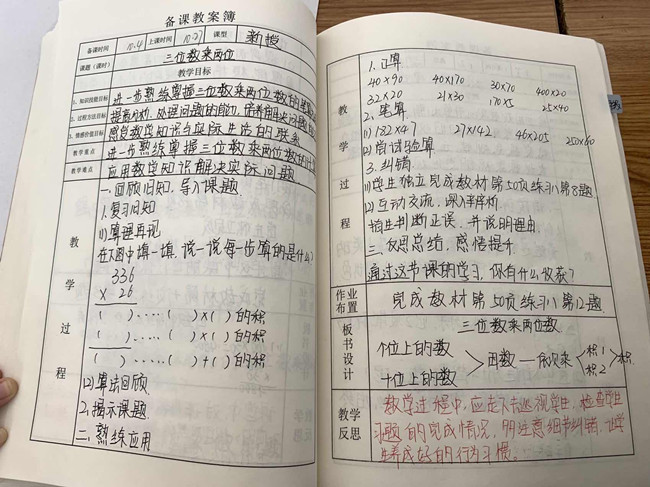 备课教案簿
备课时间 10.4 上课时间 10.7 课型 新授
课题(课时) 三位数乘两位
教学目标
1、知识技能目标 进一步熟练掌握三位数乘两位数的笔算
2、过程方法目标
3、情感价值目标 感受数学知识与实际生活的联系
教学重点 进一步熟练掌握三位数乘两位数的计
教学难点 应用数学知识解决实际问题
教学过程
一.回顾旧知,导入课题
1.复习旧知
(1)算理再现
在下图中填一填,说一说每一步算的是什么?
336
× 26
( )·····( )×( )的积
( )·····( )×( )的积
( )·····( )+( )的积
(2)算法回顾
2.揭示课题
二.熟练应用
教学过程
1.口算
40×90 40×170 30×70 400×20
32×20 21×30 170×5 25×40
2.笔算
(1)182×47 27×142 46×205 250×60
(2)尝试验算
3.纠错
(1)学生独立完成教材第50页练习八第8题
(2)互动交流,深入辨析
指生判断正误,并说明理由
三.反思总结,感悟提升
通过这节课的学习,你有什么收获?
作业布置 完成教材第50页练习八第12题
板书设计
三位数乘两位数
个位上的数
十位上的数
因数—依次乘
积1
积2
积
教学反思
教学过程中,应走下去巡视学生,检查学生
习题的完成情况,多注意细节纠错,让学
生养成好的行为习惯。